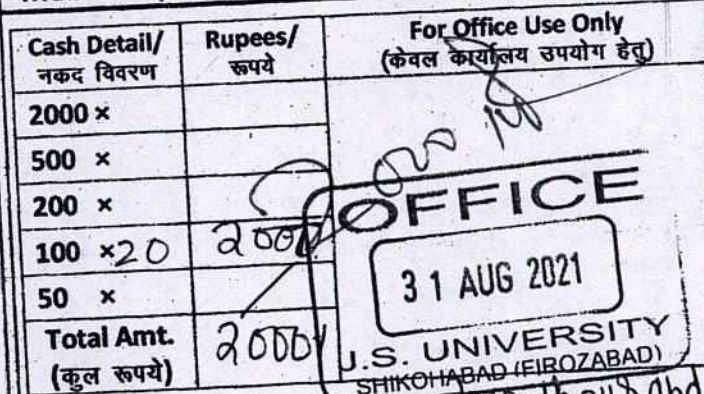 Cash Detail/ Rupees/ For Office Use Only
नकद विवरण रूपये (केवल कार्यालय उपयोग हेतु)
2000 ×
500 ×
200 ×
100 ×20 2000/
50 ×
Total Amt. 2000/
(कुल रूपये)
OFFICE
31 AUG 2021
J.S. UNIVERSITY
SHIKOHABAD (FIROZABAD)